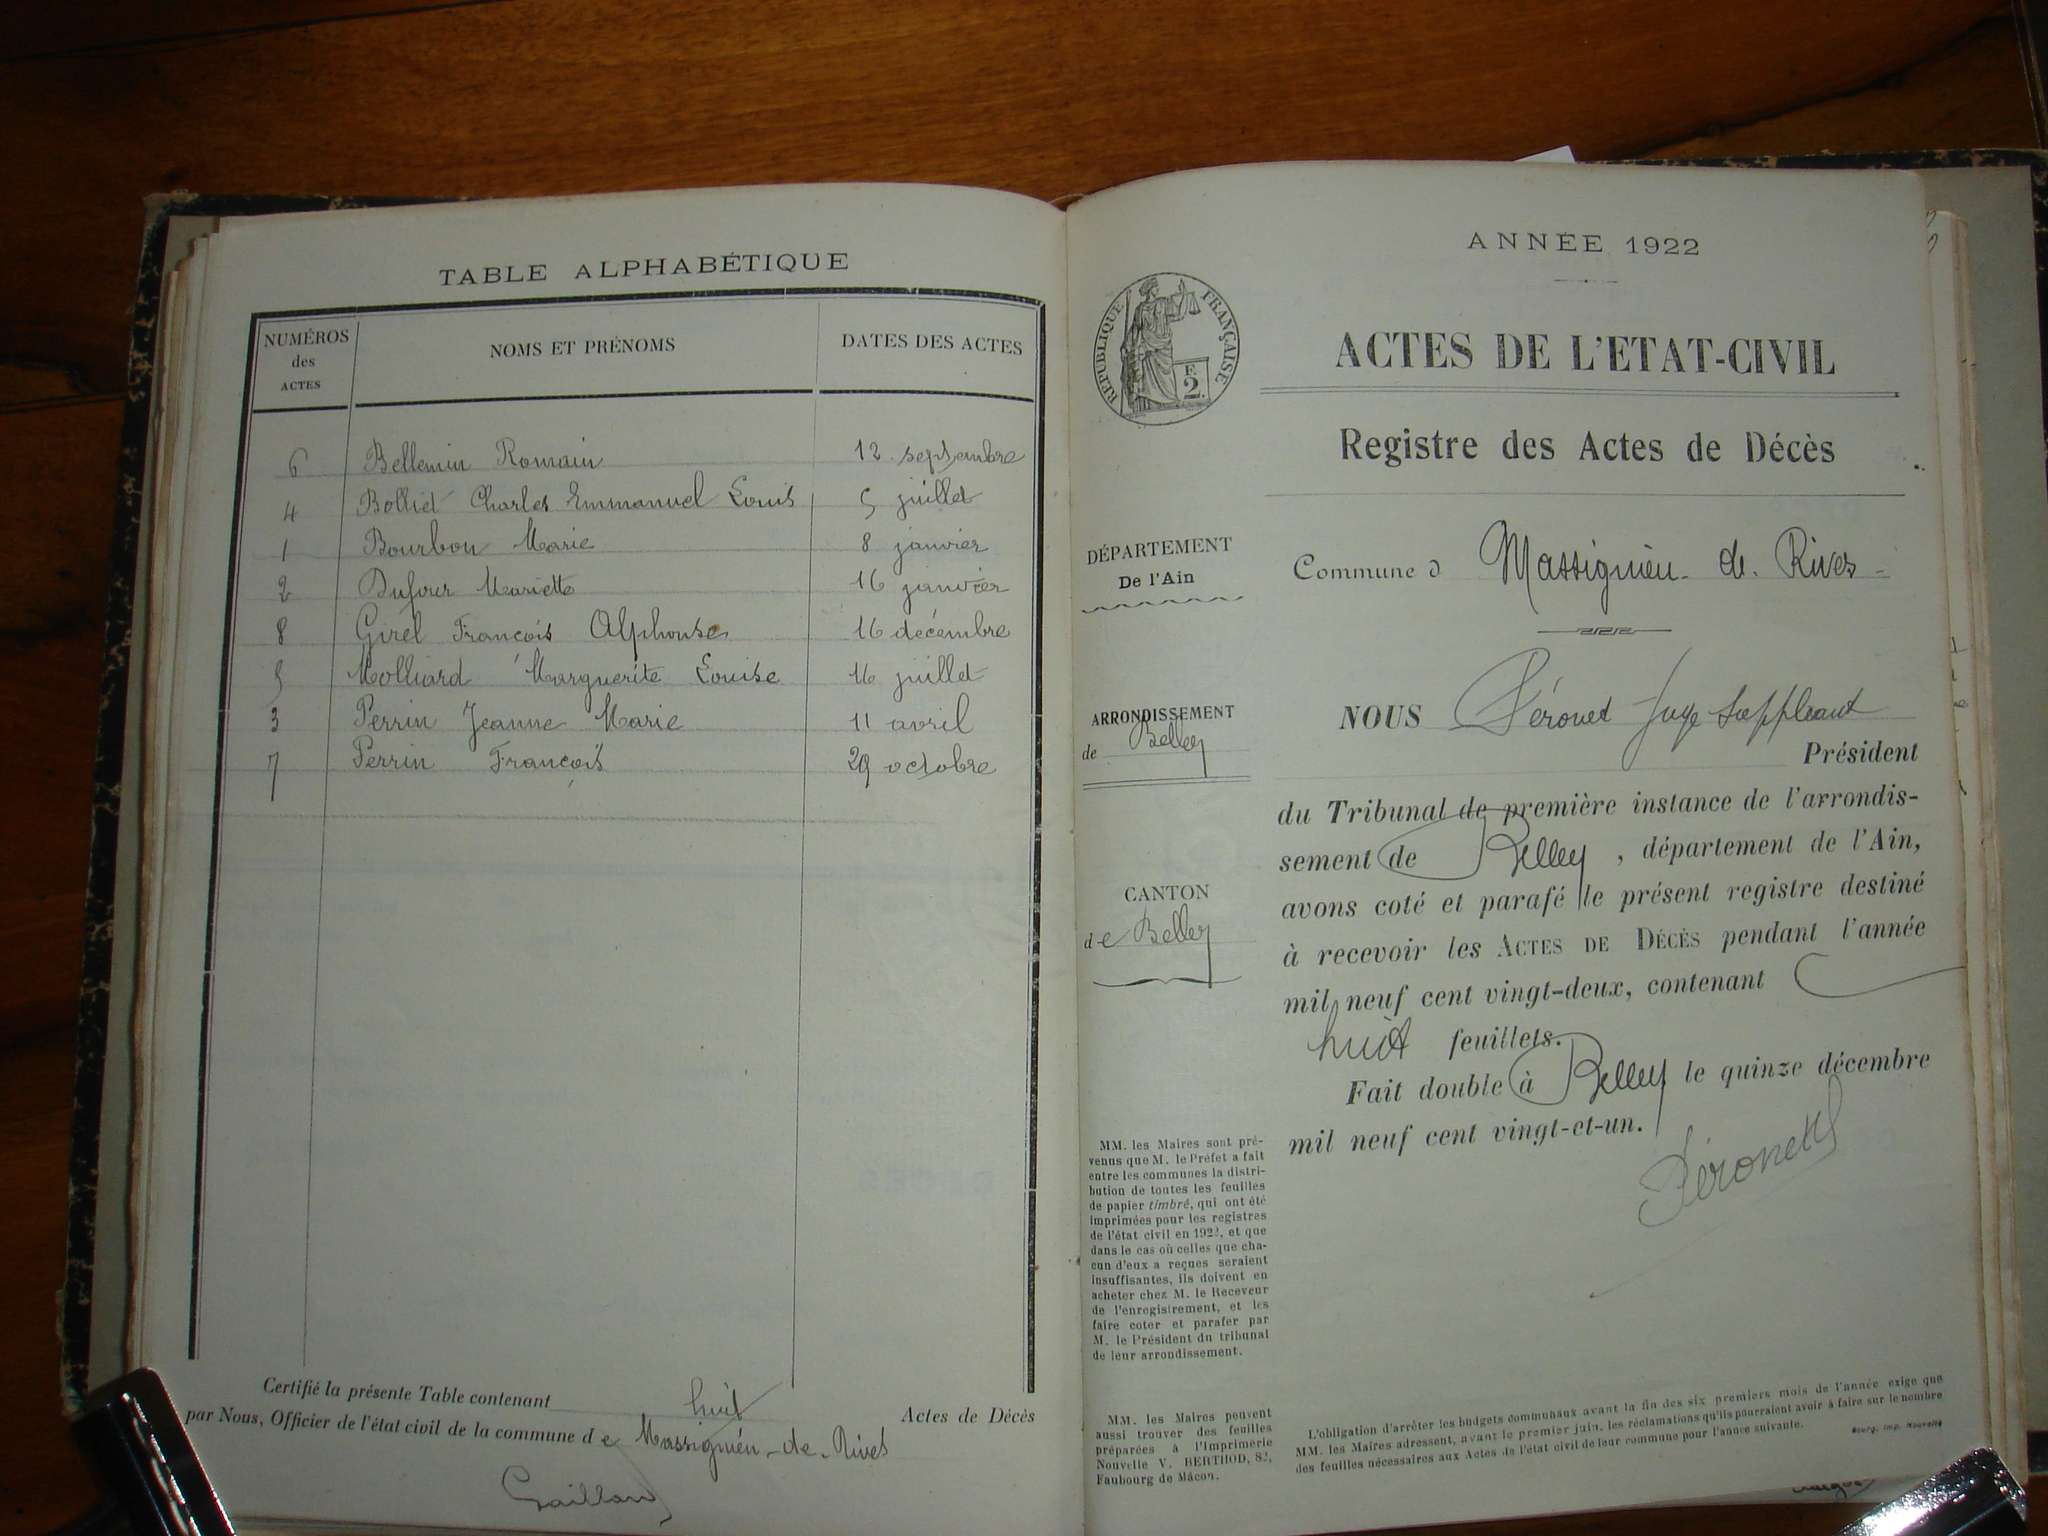 TABLE ALPHABÉTIQUE
NUMÉROS des ACTES NOMS ET PRÉNOMS DATES DES ACTES
6 Bellemin Romain 12 septembre
4 Bolliet Charles Emmanuel Louis 5 juillet
1 Bourbon Marie 8 janvier
2 Dufour Mariette 16 janvier
8 Girel François Alphonse 16 décembre
5 Molliard Marguerite Louise 16 juillet
3 Perrin Jeanne Marie 11 avril
7 Perrin François 29 octobre
Certifié la présente Table contenant huit Actes de Décès
par Nous, Officier de l'état civil de la commune de Massignieu-de-Rives
ANNÉE 1922
RÉPUBLIQUE FRANÇAISE
2F
ACTES DE L'ETAT-CIVIL
Registre des Actes de Décès
DÉPARTEMENT
De l'Ain
Commune d Massignieu-de-Rives
ARRONDISSEMENT
de Belley
CANTON
de Belley
NOUS Péronet Juge Suppléant
Président
du Tribunal de première instance de l'arrondis-
sement de Belley, département de l'Ain,
avons coté et parafé le présent registre destiné
à recevoir les ACTES DE DÉCÈS pendant l'année
mil neuf cent vingt-deux, contenant
huit feuillets.
Fait double à Belley le quinze décembre
mil neuf cent vingt-et-un.
Péronet
MM. les Maires sont pré-
venus que M. le Préfet a fait
entre les communes la distri-
bution de toutes les feuilles
de papier timbré, qui ont été
imprimées pour les registres
de l'état civil en 1922, et que
dans le cas où celles que cha-
cun d'eux a reçues seraient
insuffisantes, ils doivent en
acheter chez M. le Receveur
de l'enregistrement, et les
faire coter et parafer par
M. le Président du tribunal
de leur arrondissement.
MM. les Maires peuvent
aussi trouver des feuilles
préparées à l'Imprimerie
Nouvelle V. BERTHOD, 82,
Faubourg de Mâcon.
L'obligation d'arrêter les budgets communaux avant la fin des six premiers mois de l'année exige que
MM. les Maires adressent, avant le premier juin, les réclamations qu'ils pourraient avoir à faire sur le nombre
des feuilles nécessaires aux Actes de l'état civil de leur commune pour l'année suivante.
Bourg, imp. Nouvelle